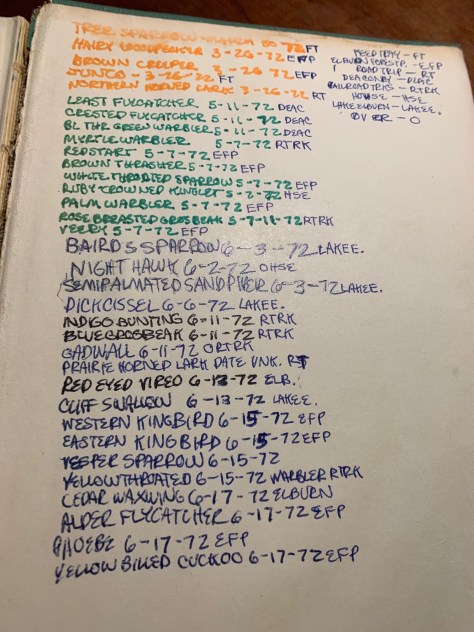 TREE SPARROW - MARCH 72 FT
HAIRY WOODPECKER 3-26-72 EFP
BROWN CREEPER 3-26-72 EFP
JUNCO - 3-26-72 FT
NORTHERN HORNED LARK 3-26-72 RT
LEAST FLYCATCHER 5-11-72 DEAC
CRESTED FLYCATCHER 5-11-72 DEAC
BL THR GREEN WARBLER 5-11-72 DEAC
MYRTLE WARBLER 5-7-72 RTRK
REDSTART 5-7-72 EFP
BROWN THRASHER 5-7-72 EFP
WHITE THROATED SPARROW 5-7-72 EFP
RUBY CROWNED KINGLET 5-2-72 HSE
PALM WARBLER 5-7-72 EFP
ROSE BREASTED GROSBEAK 5-7-11-72 RTRK
VEERY 5-7-72 EFP
BAIRDS SPARROW 6-3-72 LAKEE.
NIGHT HAWK 6-2-72 OHSE
SEMIPALMATED SANDPIPER 6-3-72 LAKEE.
DICKCISSEL 6-6-72 LAKEE.
INDIGO BUNTING 6-11-72 RTRK
BLUE GROSBEAK 6-11-72 RTRK
GADWALL 6-11-72 ORTRK
PRAIRIE HORNED LARK DATE UNK. RT
RED EYED VIREO 6-13-72 ELB.
CLIFF SWALLOW 6-13-72 LAKEE.
WESTERN KINGBIRD 6-15-72 EFP
EASTERN KINGBIRD 6-15-72 EFP
VESPER SPARROW 6-15-72
YELLOWTHROATED 6-15-72 WARBLER RTRK
CEDAR WAXWING 6-17-72 ELBURN
ALDER FLYCATCHER 6-17-72 EFP
PHOEBE 6-17-72 EFP
YELLOW BILLED CUCKOO 6-17-72 EFP
FEED TRAY - FT
ELBURN FORESTP. - EFP
ROAD TRIP - RT
DEACON BY - DEAC
RAILROAD TRKS - RTRK
HOUSE - HSE
LAKE ELBURN - LAKEE.
OVER - O